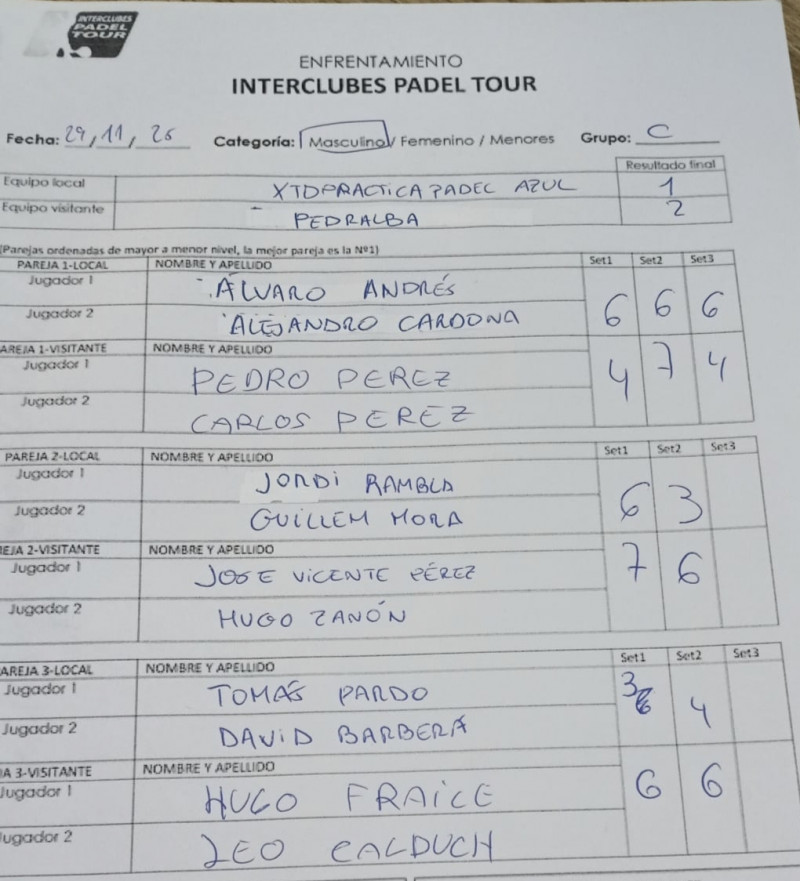 INTERCLUBES
PADEL
TOUR
ENFRENTAMIENTO
INTERCLUBES PADEL TOUR
Fecha: 29, 11, 25 Categoría: Masculino / Femenino / Menores Grupo: C
Resultado final
Equipo local XTDPRACTICAPADEL AZUL 1
Equipo visitante PEDRALBA 2
(Parejas ordenadas de mayor a menor nivel, la mejor pareja es la Nº1)
PAREJA 1-LOCAL NOMBRE Y APELLIDO Set1 Set2 Set3
Jugador 1 ÁLVARO ANDRÉS
Jugador 2 ALEJANDRO CARDONA 6 6 6
AREJA 1-VISITANTE NOMBRE Y APELLIDO
Jugador 1 PEDRO PEREZ 4 7 4
Jugador 2 CARLOS PEREZ
PAREJA 2-LOCAL NOMBRE Y APELLIDO Set1 Set2 Set3
Jugador 1 JORDI RAMBLA
Jugador 2 GUILLEM MORA 6 3
EJA 2-VISITANTE NOMBRE Y APELLIDO
Jugador 1 JOSE VICENTE PÉREZ 7 6
Jugador 2 HUGO ZANÓN
AREJA 3-LOCAL NOMBRE Y APELLIDO Set1 Set2 Set3
Jugador 1 TOMÁS PARDO 3
Jugador 2 DAVID BARBERÁ 4
A 3-VISITANTE NOMBRE Y APELLIDO
Jugador 1 HUGO FRAICE 6 6
ugador 2 LEO CALDUCH